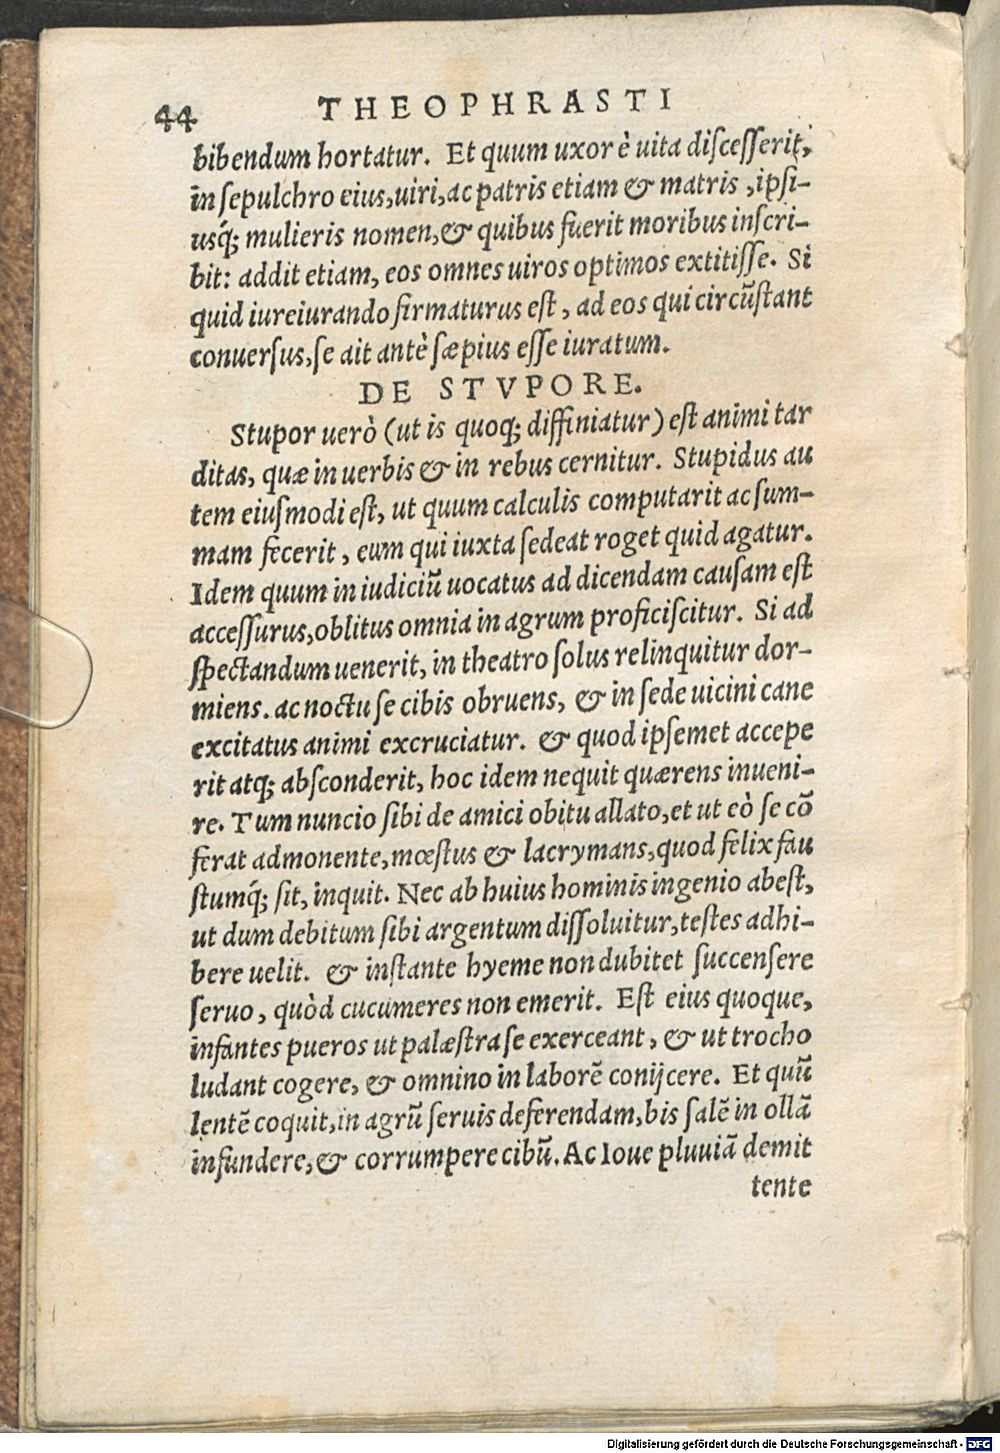 44 THEOPHRASTI
bibendum hortatur. Et quum uxor è uita diſceſſerit,
in ſepulchro eius, uiri, ac patris etiam & matris, ipſi-
usq́; mulieris nomen, & quibus fuerit moribus inſcri-
bit: addit etiam, eos omnes uiros optimos extitiſſe. Si
quid iureiurando firmaturus eſt, ad eos qui circũſtant
conuerſus, ſe ait antè ſæpius eſſe iuratum.
DE STVPORE.
Stupor uerò (ut is quoq; diffiniatur) eſt animi tar
ditas, quæ in uerbis & in rebus cernitur. Stupidus au
tem eiuſmodi eſt, ut quum calculis computarit ac ſum-
mam fecerit, eum qui iuxta ſedeat roget quid agatur.
Idem quum in iudiciũ uocatus ad dicendam cauſam eſt
acceſſurus, oblitus omnia in agrum proficiſcitur. Si ad
ſpectandum uenerit, in theatro ſolus relinquitur dor-
miens. ac noctu ſe cibis obruens, & in ſede uicini cane
excitatus animi excruciatur. & quod ipſemet accepe
rit atq; abſconderit, hoc idem nequit quærens inueni-
re. Tum nuncio ſibi de amici obitu allato, et ut eò ſe cõ
ferat admonente, mœſtus & lacrymans, quod felix fau
ſtumq́; ſit, inquit. Nec ab huius hominis ingenio abeſt,
ut dum debitum ſibi argentum diſſoluitur, teſtes adhi-
bere uelit. & inſtante hyeme non dubitet ſuccenſere
ſeruo, quòd cucumeres non emerit. Eſt eius quoque,
infantes pueros ut palæſtra ſe exerceant, & ut trocho
ludant cogere, & omnino in laborẽ conijcere. Et quũ
lentẽ coquit, in agrũ ſeruis deferendam, bis ſalẽ in ollã
infundere, & corrumpere cibũ. Ac Ioue pluuiã demit
tente
Digitalisierung gefördert durch die Deutsche Forschungsgemeinschaft - DFG